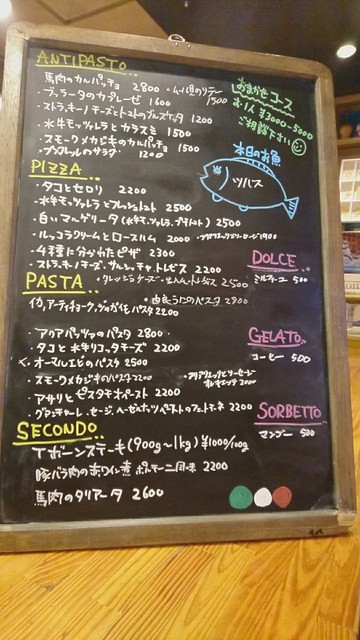 ANTIPASTO..
馬肉のカルパッチョ 2800
ブッラータのカプレーゼ 1600
1500
ストラッキーノチーズとトマトのブルスケッタ 1200
水牛モッツァレラとカラスミ 1500
スモークメカジキのカルパッチョ 1500
のサラダ 1200
おまかせコース
お1人 ¥3000~5000
ご相談下さい
本日のお魚
ツバス
PIZZA
・タコとセロリ 2200
・水牛モッツァレラとフレッシュトマト 2500
・白いマルゲリータ(水牛モッツァレラ、プチトマト) 2500
・ルッコラクリームとロースハム 2000
・4種に分かれたピザ 2300
・ストラッキーノチーズ、サルシッチャ、トレビス 2200
2500
PASTA
イカ、アーティチョーク、ジャガイモパスタ 2200
・由良うにのパスタ 2800
・アクアパッツァのパスタ 2800
・タコと水牛リコッタチーズ 2200
・オマールエビのパスタ 2500
・スモークメカジキのパスタ 2200
オレキエッテ 2000
・アサリとピスタチオペースト 2200
・グアンチャーレ、セージ、ヘーゼルナッツペーストのフェットチーネ 2200
SECONDO
Tボーンステーキ(900g~1kg) ¥1000/100g
豚バラ肉の赤ワイン煮 ポルチーニ風味 2200
馬肉のタリアータ 2600
DOLCE
ミルフィーユ 500
GELATO
コーヒー 500
SORBETTO
マンゴー 500